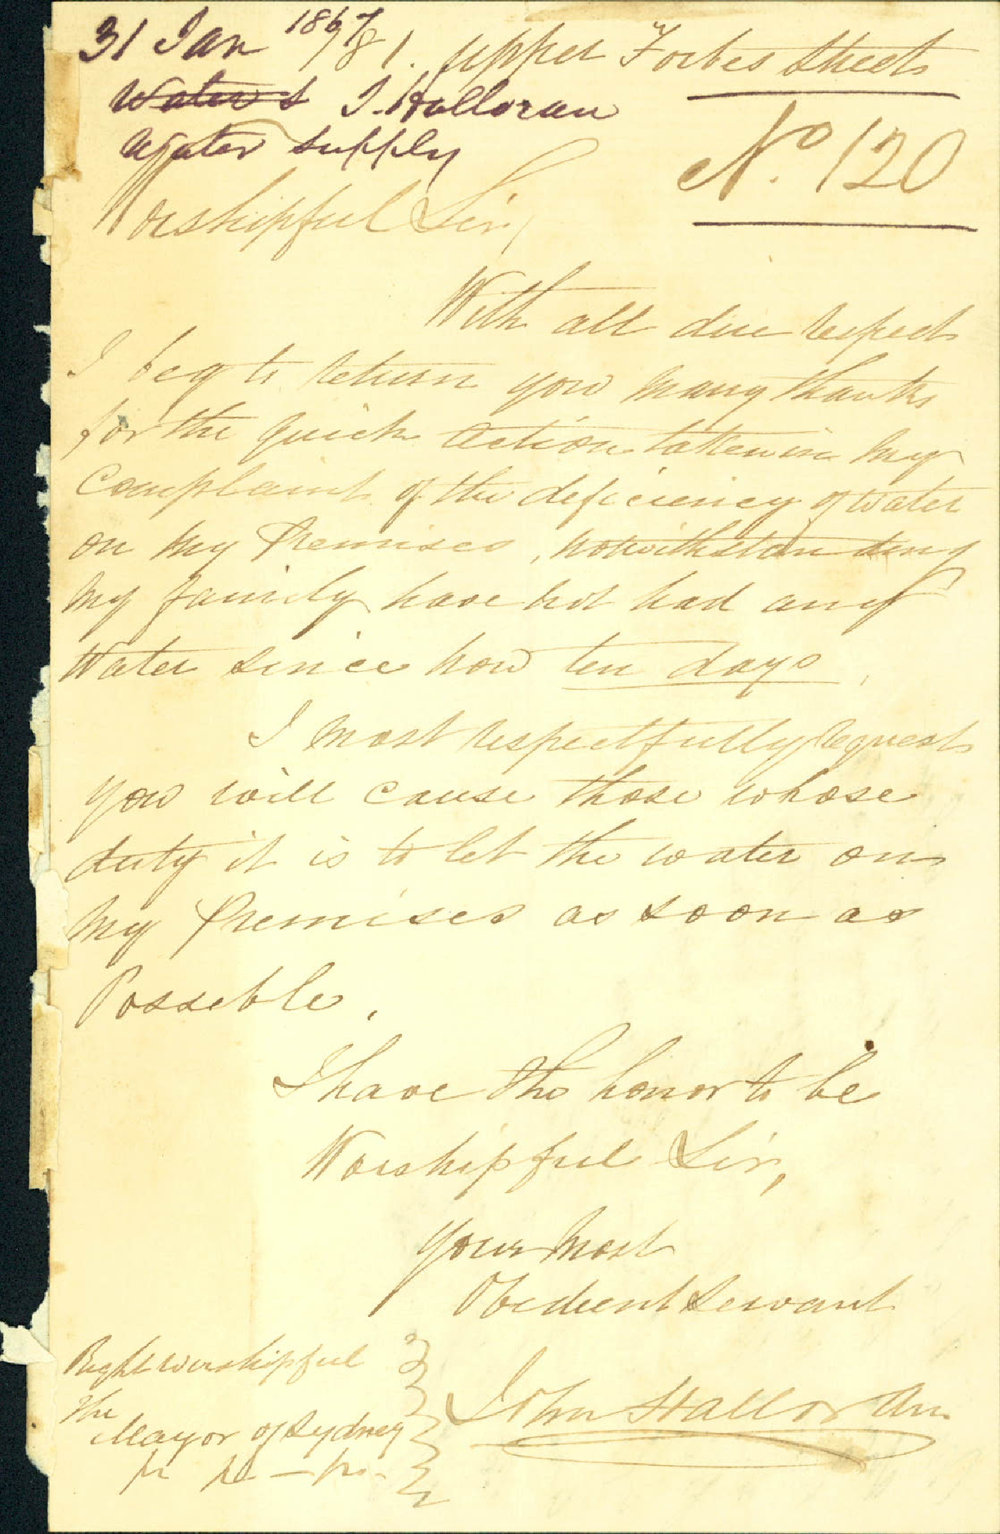 31 Jan 1867
/81. Upper Forbes Streets
Water s J. Halloran
Water Supply
No. 120
Worshipful Sir,
With all due respect
I beg to return you many thanks
for the quick action taken in my
complaint of the deficiency of water
on my Premises, notwithstanding
my family have not had any
Water since now ten days,
I most respectfully request
you will cause those whose
duty it is to let the water on
my Premises as soon as
Possible,
I have the honor to be
Worshipful Sir,
Your Most
Obedient Servant
John Halloran
Right worshipful
The
Mayor of Sydney